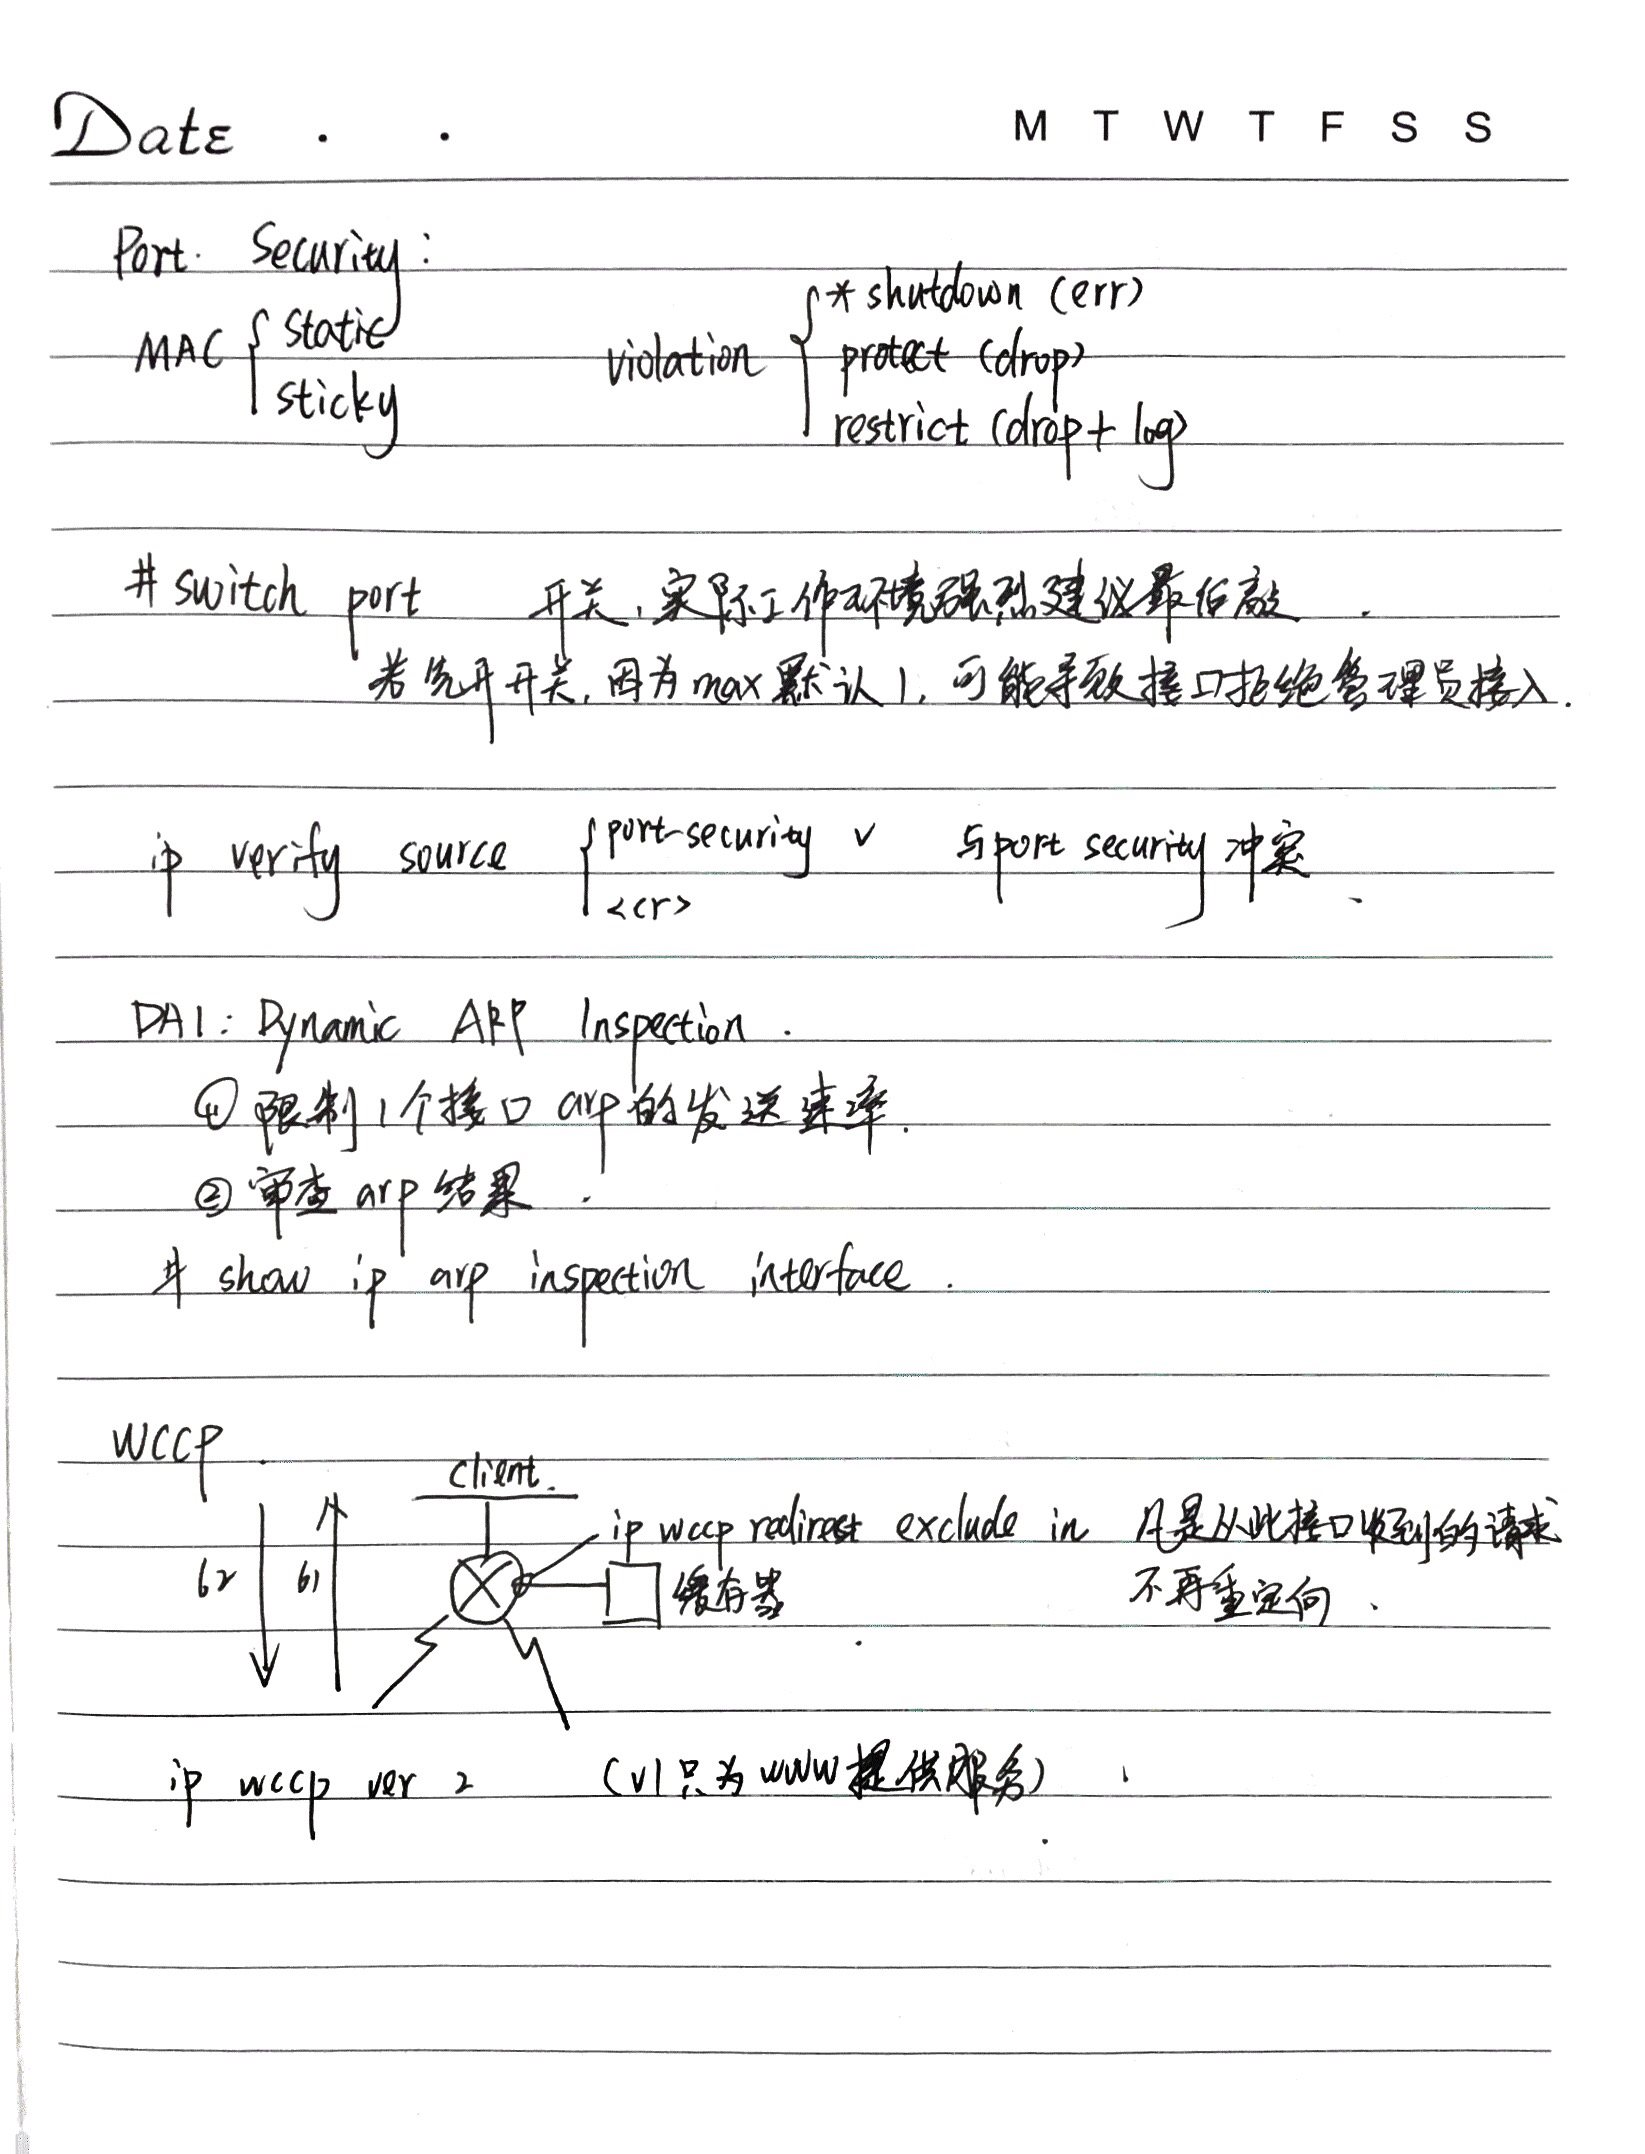 Date . .
M T W T F S S
Port. Security:
MAC { static
sticky
violation { * shutdown (err)
protect (drop)
restrict (drop + log)
# switch port 开关,实际工作环境强烈建议最后敲.
若先开开关,因为max默认1,可能导致接口拒绝管理员接入.
ip verify source { port-security v 与port security冲突.
<cr>
DAI: Dynamic ARP Inspection.
① 限制1个接口arp的发送速率.
② 审查arp结果.
# show ip arp inspection interface.
WCCP.
client.
ip wccp redirest exclude in 凡是从此接口收到的请求
62 61 缓存器 不再重定向.
ip wccp ver 2 (v1只为www提供服务)